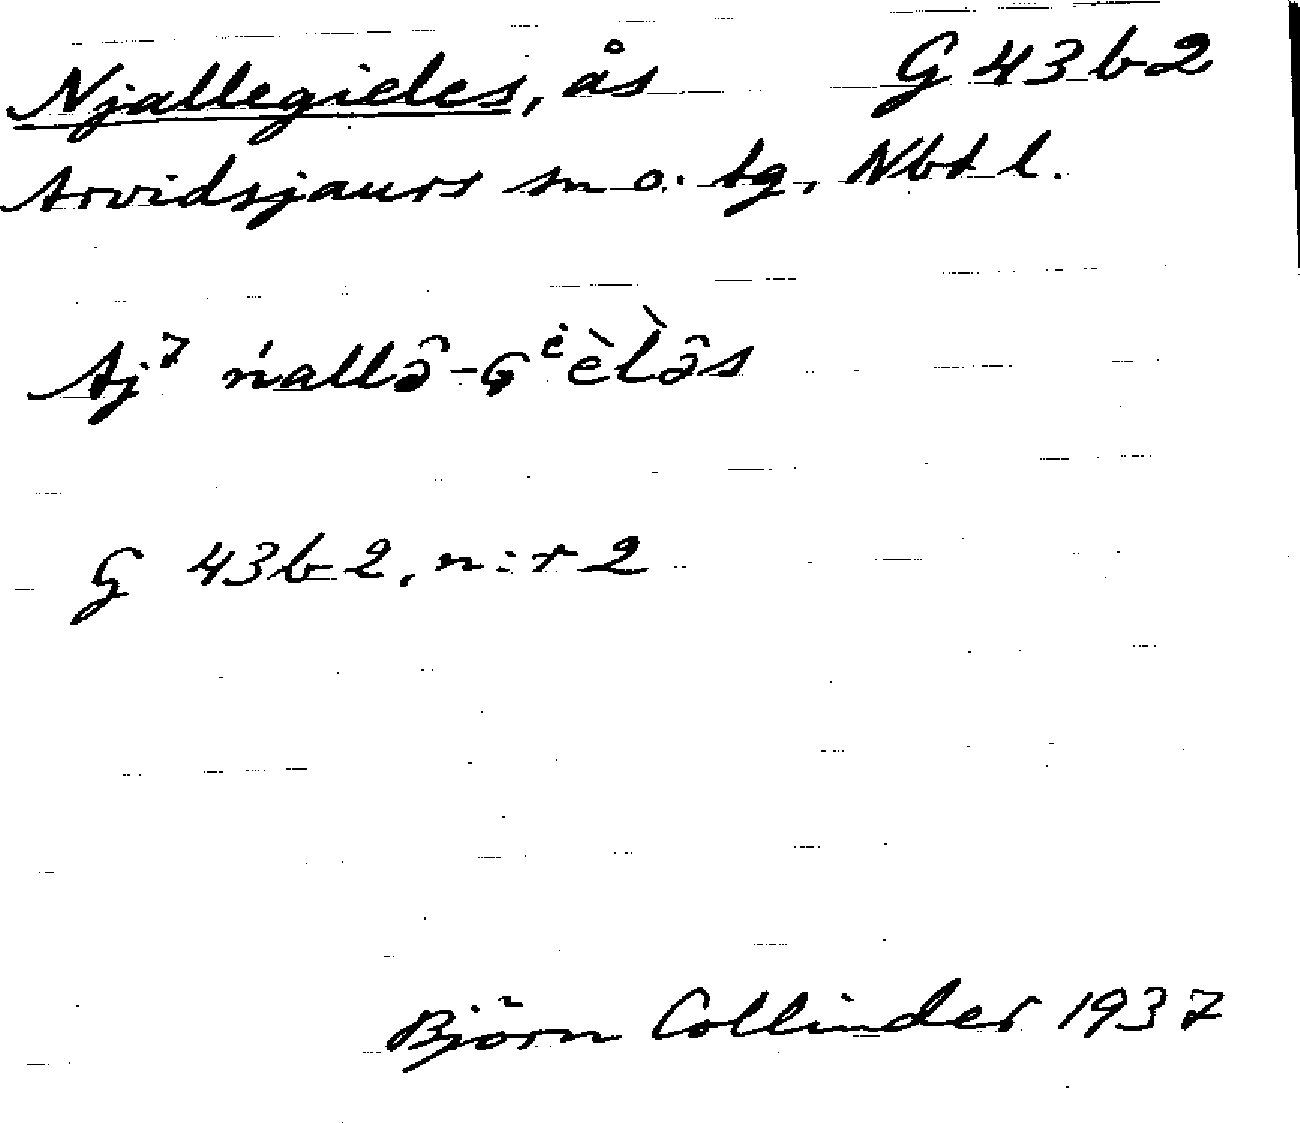 Njallegieles, ås G 43 b 2
Arvidsjaurs sn o. tg, Nbt l.
Aj⁷ ńallə̂-G̀ᵉ̇èl̀ə̂s
G 43 b 2, n:r 2
Björn Collinder 1937